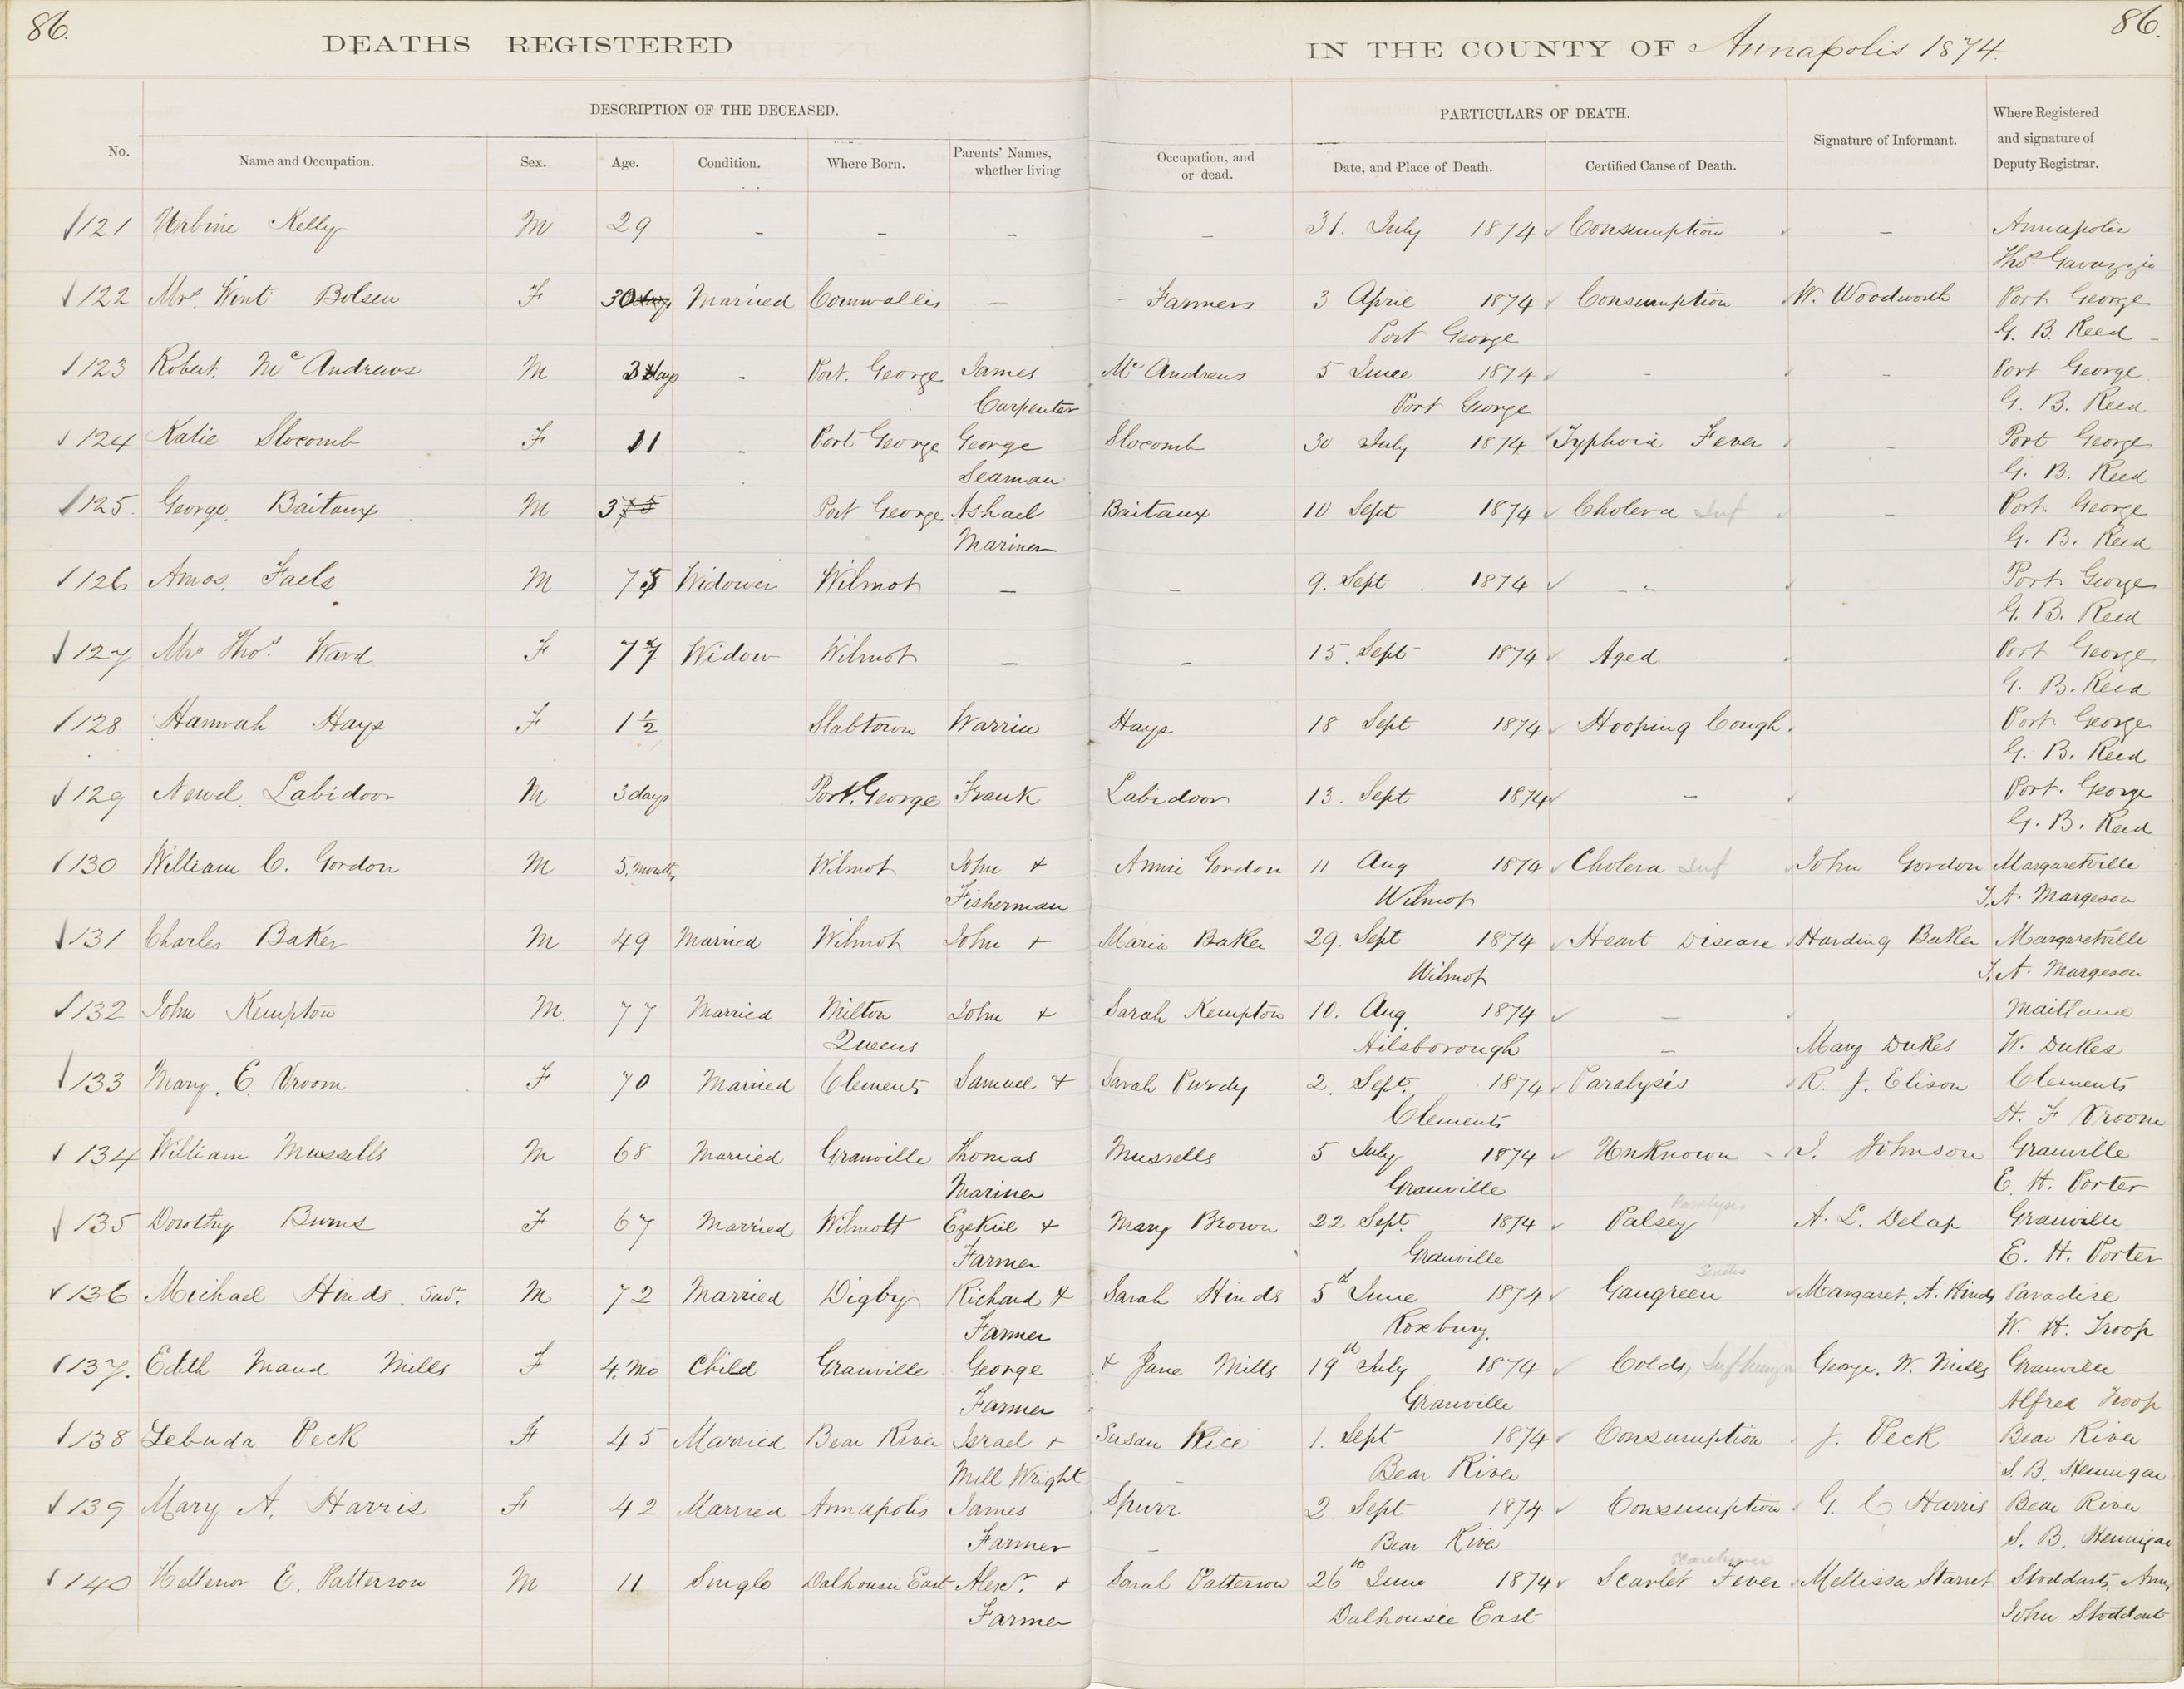 86.
86.
DEATHS REGISTERED
IN THE COUNTY OF Annapolis 1874.
DESCRIPTION OF THE DECEASED.
PARTICULARS OF DEATH.
Signature of Informant.
Where Registered
and signature of
Deputy Registrar.
No.
Name and Occupation.
Sex.
Age.
Condition.
Where Born.
Parents' Names,
whether living
Occupation, and
or dead.
Date, and Place of Death.
Certified Cause of Death.
121 Urbine Kelly M 29 - - - - 31. July 1874 Consumption - Annapolis
Thos. Gavazzie
122 Mrs. Wint Bolsen F 30 days Married Cornwallis - - Farmers 3 April 1874 Consumption W. Woodworth Port George
Port George G. B. Reed
123 Robert McAndrews M 3 days - Port George James McAndrews 5 June 1874 - - Port George
Carpenter Port George G. B. Reed
124 Katie Slocomb F 11 - Port George George Slocomb 30 July 1874 Typhoid Fever - Port George
Seaman G. B. Reed
125. George Baitaux M 3 Port George Ashael Baitaux 10 Sept 1874 Cholera Inf - Port George
Mariner G. B. Reed
126 Amos. Faels M 75 Widower Wilmot - - 9. Sept. 1874 - - Port George
G. B. Reed
127 Mrs Thos. Ward F 77 Widow Wilmot - - 15. Sept 1874 Aged Port George
G. B. Reed
128 Hannah Hays F 1 1/2 Slabtown Warrin Hays 18 Sept 1874 Hooping Cough. Port George
G. B. Reed
129 Newel Labidoor M 3 days Port George Frank Labidoor 13. Sept 1874 - Port. George
G. B. Reed
130 William C. Gordon M 5. months Wilmot John + Annie Gordon 11 Aug 1874 Cholera Inf John Gordon Margaretville
Fisherman Wilmot T. A. Margeson
131 Charles Baker M 49 Married Wilmot John + Maria Baker 29. Sept 1874 Heart Disease Harding Baker Margaretville
Wilmot T. A. Margeson
132 John Kempton M. 77 Married Milton John + Sarah Kempton 10. Aug 1874 - Maitland
Queens Hilsborough - Mary Dukes W. Dukes
133 Mary. E. Vroom F 70 Married Clements Samuel + Sarah Purdy 2. Sept. 1874 Paralysis R. J. Elison Clements
Clements H. F Vroom
134 William Mussells M 68 Married Granville Thomas Mussells 5 July 1874 Unknown - Johnson Granville
Mariner Granville E. H. Porter
Paralysis
135 Dorothy Burns F 67 Married Wilmott Ezekiel + Mary Brown 22 Sept. 1874 Palsey A. L. Delap Granville
Farmer Granville E. H. Porter
Senilis
136 Michael Hinds. Senr. M 72 Married Digby Richard + Sarah Hinds 5th June 1874 Gangreen Margaret. A. Hinds Paradise
Farmer Roxbury. W. H. Troop
137. Edith Maud Mills F 4. Mo Child Granville George + Jane Mills 19th July 1874 Colds, Influenza George. W. Mills Granville
Farmer Granville Alfred Troop
138 Lebuda Peck F 45 Married Bear River Israel + Susan Rice 1. Sept 1874 Consumption J. Peck Bear River
Mill Wright - Bear River S. B. Hennigar
139 Mary A. Harris F 42 Married Annapolis James Spurr 2 Sept 1874 Consumption G. C Harris Bear River
Farmer - Bear River S. B. Hennigar
140 Hellenor E. Patterson M 11 Single Dalhousie East Alexr. + Sarah Patterson 26th June 1874 Scarlet Fever Mellissa Starret Stoddarts, Ann.
Farmer Dalhousie East John Stoddart